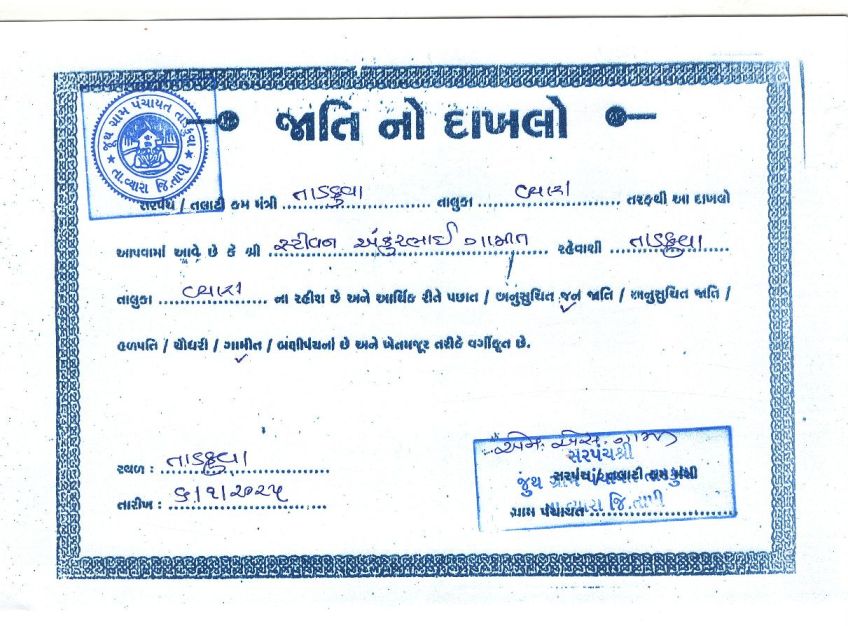 જુથ ગ્રામ પંચાયત તાડકુવા
તા.વ્યારા જિ.તાપી
જાતિ નો દાખલો
સરપંચ / તલાટી કમ મંત્રી તાડકુવા તાલુકા વ્યારા તરફથી આ દાખલો
આપવામાં આવે છે કે શ્રી સ્ટીવન અંકુરભાઈ ગામીત રહેવાશી તાડકુવા
તાલુકા વ્યારા ના રહીશ છે અને આર્થિક રીતે પછાત / અનુસુચિત જન જાતિ / અનુસુચિત જાતિ /
હળપતિ / ચૌધરી / ગામીત / બક્ષીપંચનાં છે અને ખેતમજૂર તરીકે વર્ગીકૃત છે.
સ્થળ : તાડકુવા
તારીખ : ૬/૧/૨૦૨૫
એમ. એસ. ગામીત
સરપંચશ્રી
સરપંચ / તલાટી કમ મંત્રી
જુથ ગ્રામ પંચાયત તાડકુવા
ગ્રામ પંચાયત
તા.વ્યારા જિ.તાપી